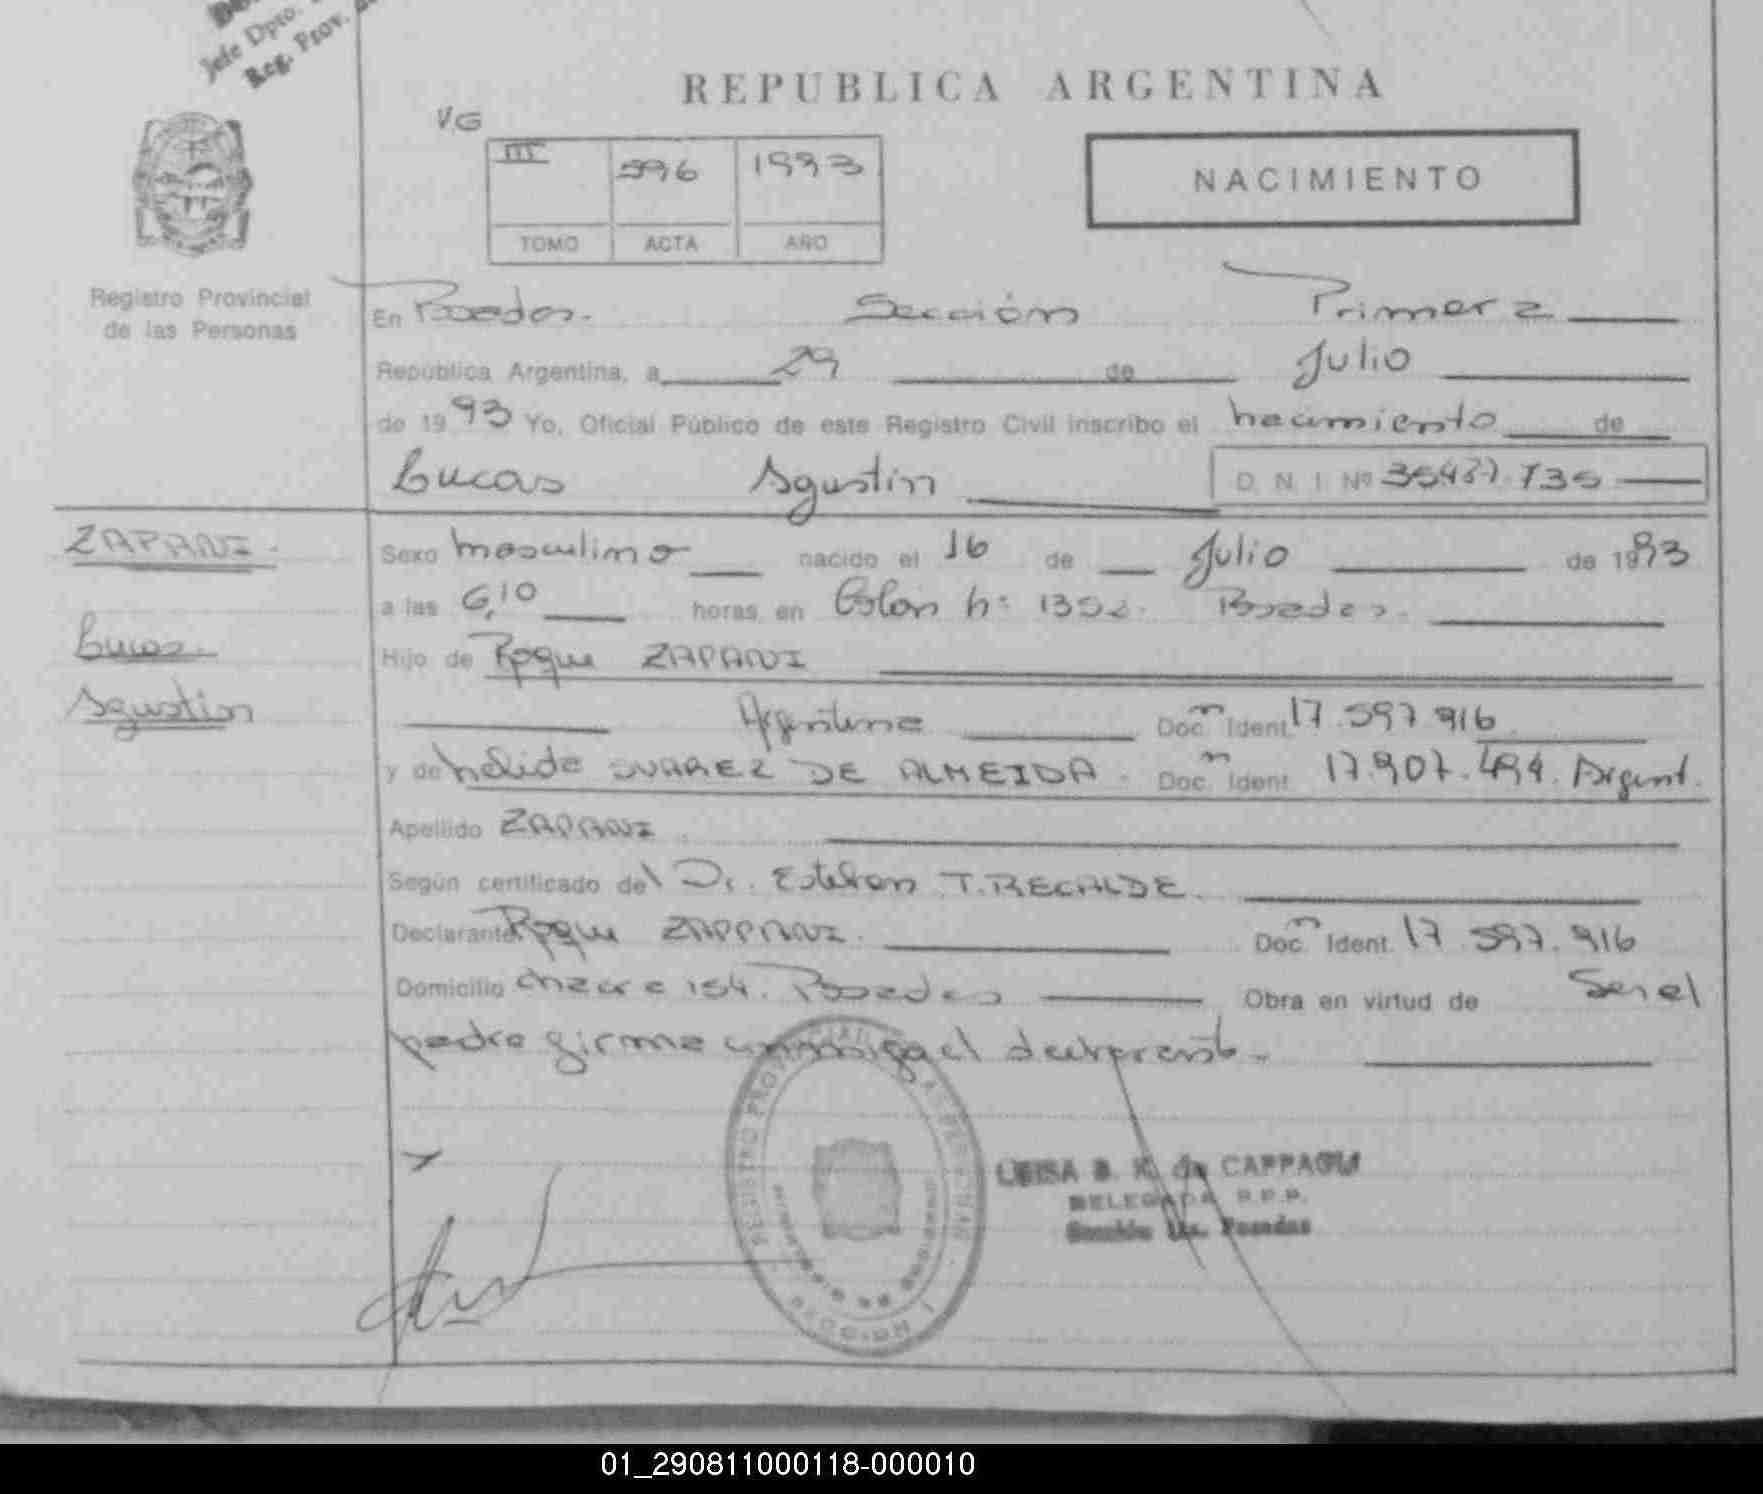 Jefe Dpto.
Reg. Prov.
REPUBLICA ARGENTINA
VG
III 596 1993
TOMO ACTA AÑO
NACIMIENTO
Registro Provincial
de las Personas
En Posadas. Sección Primera
República Argentina, a 29 de Julio
de 1993 Yo, Oficial Público de este Registro Civil inscribo el nacimiento de
Lucas Agustin D. N. I. Nº 35437.735
ZAPANI.
Sexo masculino nacido el 16 de Julio de 1993
a las 6,10 horas en Colon nº 1352. Posadas.
Lucas
Hijo de Roque ZAPANI
Agustin
Argentina Doc. Ident. 17.597.916
y de Nelida SUAREZ DE ALMEIDA. Doc. Ident. 17.907.494. Argent.
Apellido ZAPANI
Según certificado del Dr. Esteban T. RECALDE.
Declarante Roque ZAPPANI. Doc. Ident. 17.597.916
Domicilio chacra 154. Posadas Obra en virtud de Ser el
padre firma conmigo el declarante.
REGISTRO PROVINCIAL DE LAS PERSONAS
LUISA B. K. de CAPPAGLI
DELEGADA R.P.P.
Sección 1ra. Posadas
01_290811000118-000010